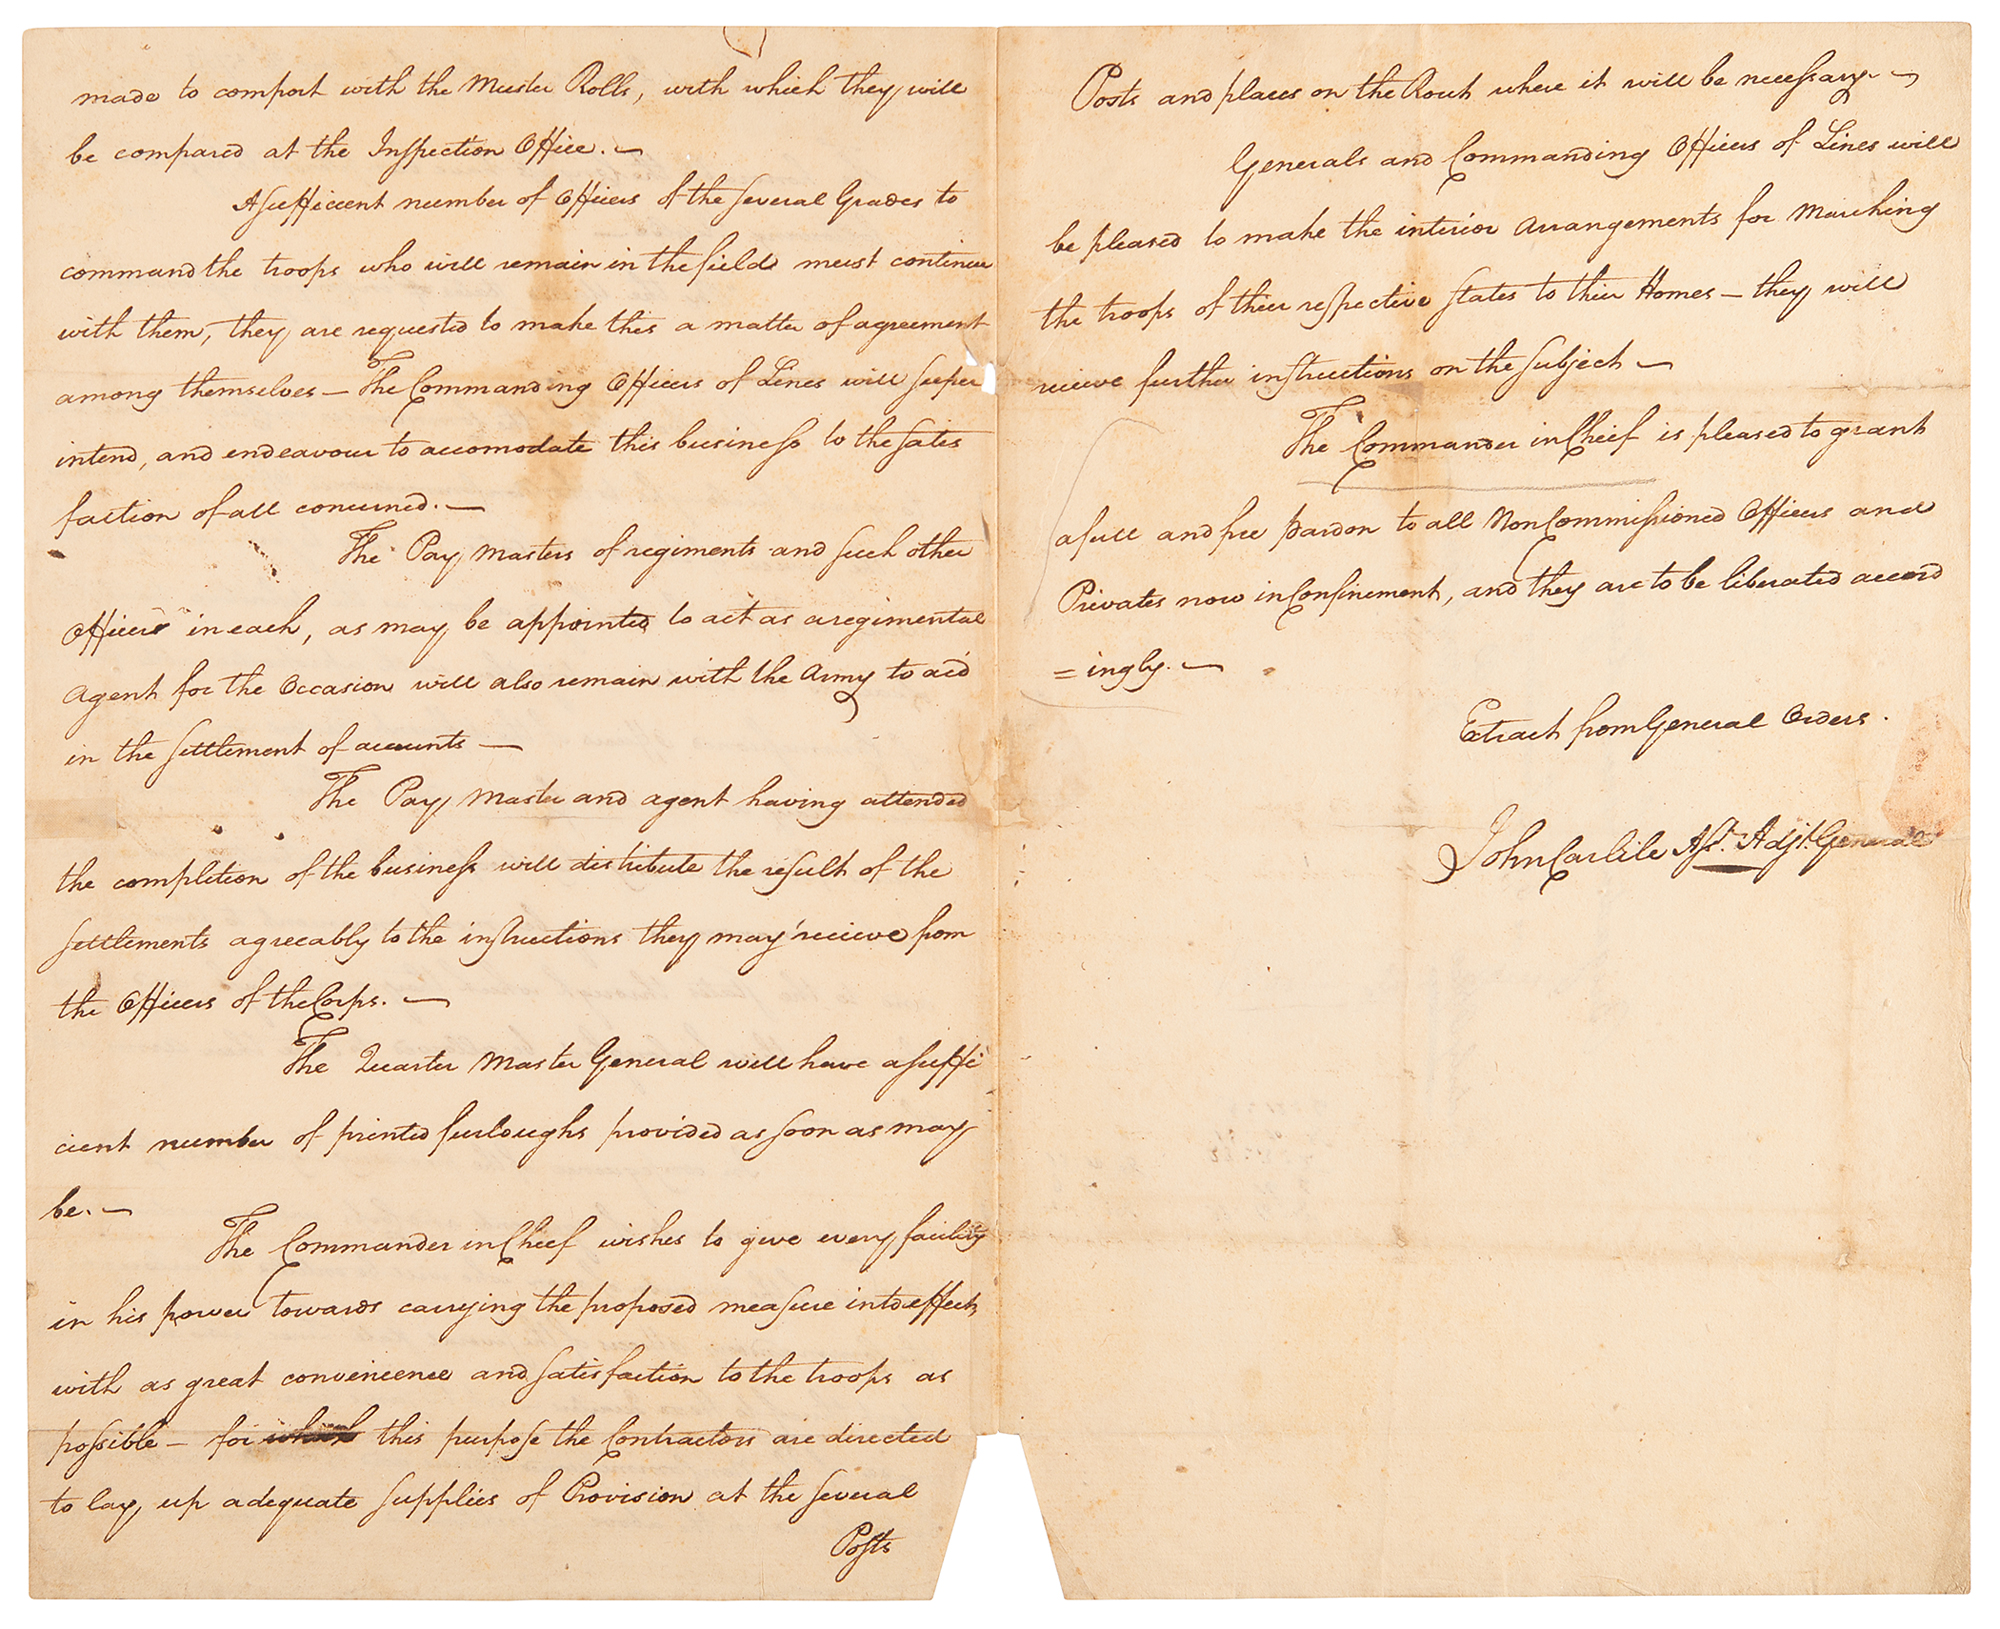 made to comport with the Muster Rolls, with which they will
be compared at the Inspection Office. —
A sufficient number of Officers of the several Grades to
command the troops who will remain in the field must continue
with them, they are requested to make this a matter of agreement
among themselves — The Commanding Officers of Lines will super
intend, and endeavour to accomodate this business to the satis
faction of all concerned. —
The Pay Masters of regiments and such other
Officers in each, as may be appointed to act as a regimental
Agent for the Occasion will also remain with the Army to aid
in the settlement of accounts —
The Pay Master and agent having attended
the completion of the business will distribute the result of the
settlements agreeably to the instructions they may recieve from
the Officers of the Corps. —
The Quarter Master General will have a suffi
cient number of printed furloughs provided as soon as may
be. —
The Commander in Cheef wishes to give every facility
in his power towards carrying the proposed measure into effect,
with as great convenience and satisfaction to the troops as
possible — for which this purpose the Contractors are directed
to lay up adequate supplies of Provision at the several
Posts
Posts and places on the Rout where it will be necessary. —
Generals and Commanding Officers of Lines will
be pleased to make the interior Arrangements for Marching
the troops of their respective states to thier Homes — they will
recieve further instructions on the subject —
The Commander in Cheif is pleased to grant
a full and free pardon to all Non Commissioned Officers and
Privates now in Confinement, and they are to be liberated accord
= ingly. —
Extract from General Orders.
John Carlile Asst. Adjt. General